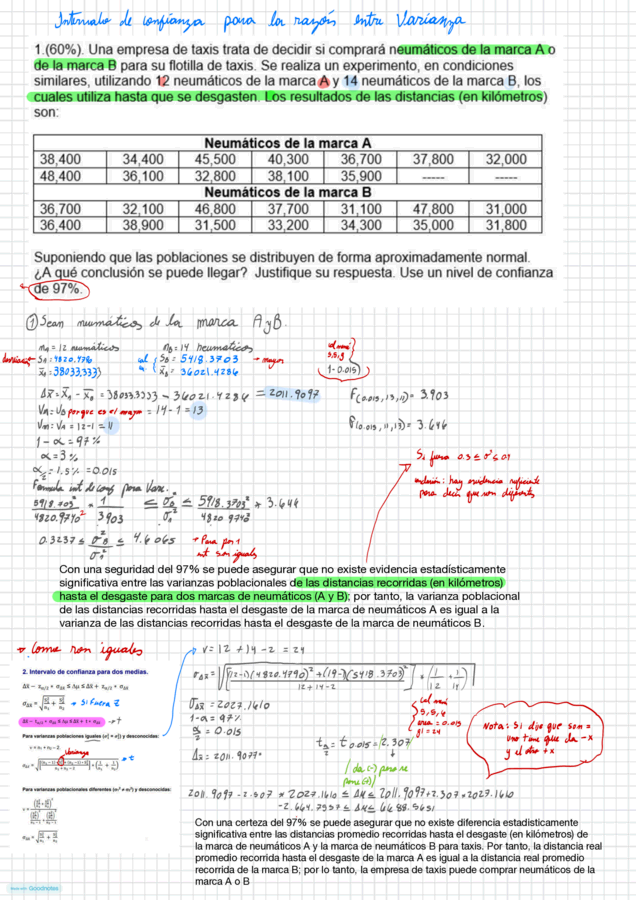 Intervalo de confianza para la razón entre Varianza
1.(60%). Una empresa de taxis trata de decidir si comprará neumáticos de la marca A o
de la marca B para su flotilla de taxis. Se realiza un experimento, en condiciones
similares, utilizando 12 neumáticos de la marca A y 14 neumáticos de la marca B, los
cuales utiliza hasta que se desgasten. Los resultados de las distancias (en kilómetros)
son:
Neumáticos de la marca A
38,400 34,400 45,500 40,300 36,700 37,800 32,000
48,400 36,100 32,800 38,100 35,900 ----- -----
Neumáticos de la marca B
36,700 32,100 46,800 37,700 31,100 47,800 31,000
36,400 38,900 31,500 33,200 34,300 35,000 31,800
Suponiendo que las poblaciones se distribuyen de forma aproximadamente normal.
¿A qué conclusión se puede llegar? Justifique su respuesta. Use un nivel de confianza
de 97%.
① Sean neumáticos de la marca A y B.
nA = 12 neumáticos nB = 14 neumaticos
SB = 5418.3703 → mayor
x̄A = 38033,3333 x̄B = 36021.4286
1-0.015
Δx̄ = x̄A - x̄B = 38033.3333 - 36021.4286 = 2011.9097
F(0.015,13,11) = 3.903
porque es el mayor = 14-1 = 13
= 12-1 = 11
F(0.015,11,13) = 3.646
1-α = 97%
α = 3%
α/2 = 1.5% = 0.015
Formula int de conf para Var.
3903
0.3237 ≤ σ²B/σ²1 ≤ 4.6065
Con una seguridad del 97% se puede asegurar que no existe evidencia estadísticamente
significativa entre las varianzas poblacionales de las distancias recorridas (en kilómetros)
hasta el desgaste para dos marcas de neumáticos (A y B); por tanto, la varianza poblacional
de las distancias recorridas hasta el desgaste de la marca de neumáticos A es igual a la
varianza de las distancias recorridas hasta el desgaste de la marca de neumáticos B.
→ Como son iguales
v = 12 + 14 - 2 = 24
2. Intervalo de confianza para dos medias.
→ Si fuera Z
Para varianzas poblacionales iguales (σ₁² = σ₂²) y desconocidas:
Para varianzas poblacionales diferentes (σ₁² ≠ σ₂²) y desconocidas:
σΔx̄ = 2027.1610
1-α = 97%
α/2 = 0.015
Δx̄ = 2011.9077
t α/2 = t 0.015 = 2.307
area = 0.015
gl = 24
Nota: Si dije que son =
uno tiene que da -x
y el otro +x
2011.9097 - 2.307 * 2027.1610 ≤ ΔM ≤ 2011.9097 + 2.307 * 2027.1610
-2.664.7537 ≤ ΔM ≤ 6688.5651
Con una certeza del 97% se puede asegurar que no existe diferencia estadisticamente
significativa entre las distancias promedio recorridas hasta el desgaste (en kilómetros) de
la marca de neumáticos A y la marca de neumáticos B para taxis. Por tanto, la distancia real
promedio recorrida hasta el desgaste de la marca A es igual a la distancia real promedio
recorrida de la marca B; por lo tanto, la empresa de taxis puede comprar neumáticos de la
marca A o B
Made with Goodnotes